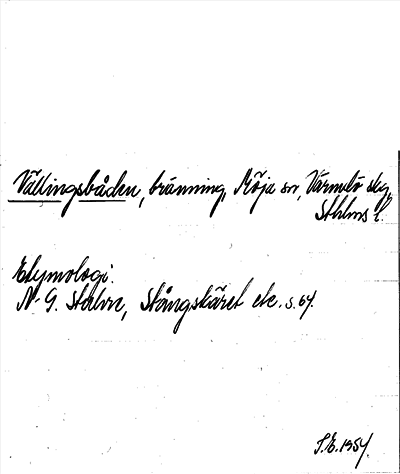 Vällingsbåden, bränning, Möja sn, Värmdö skg,
Sthlms l.
Etymologi.
N. G. Stahre, Stångskäret etc. s. 64.
S.E. 1954.